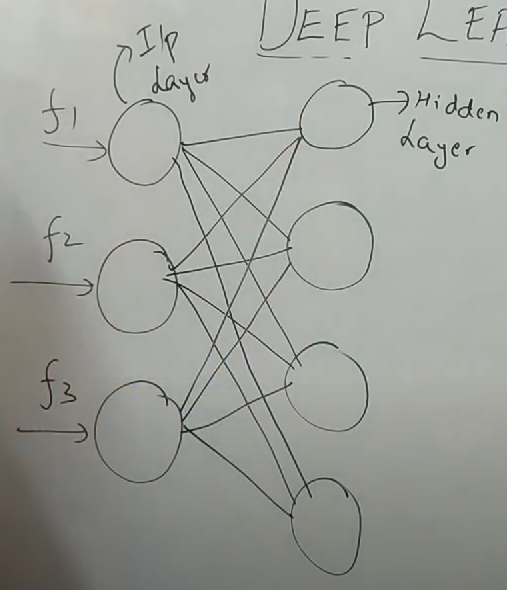 DEEP LEA
I/p
Layer
f1
Hidden
Layer
f2
f3